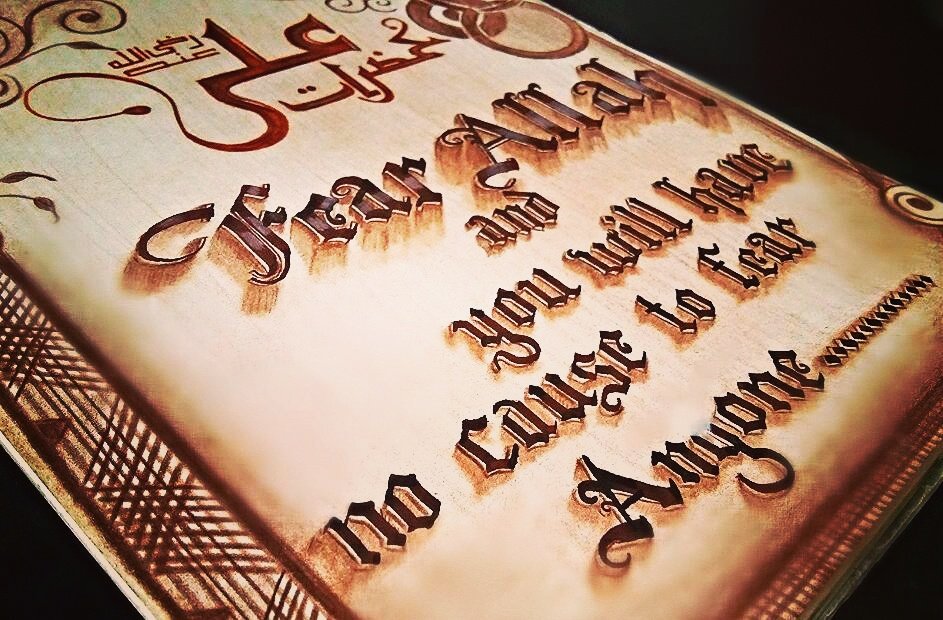 حضرات علی رضی الله عنه
Fear Allah
and
you will have
no cause to fear
Anyone